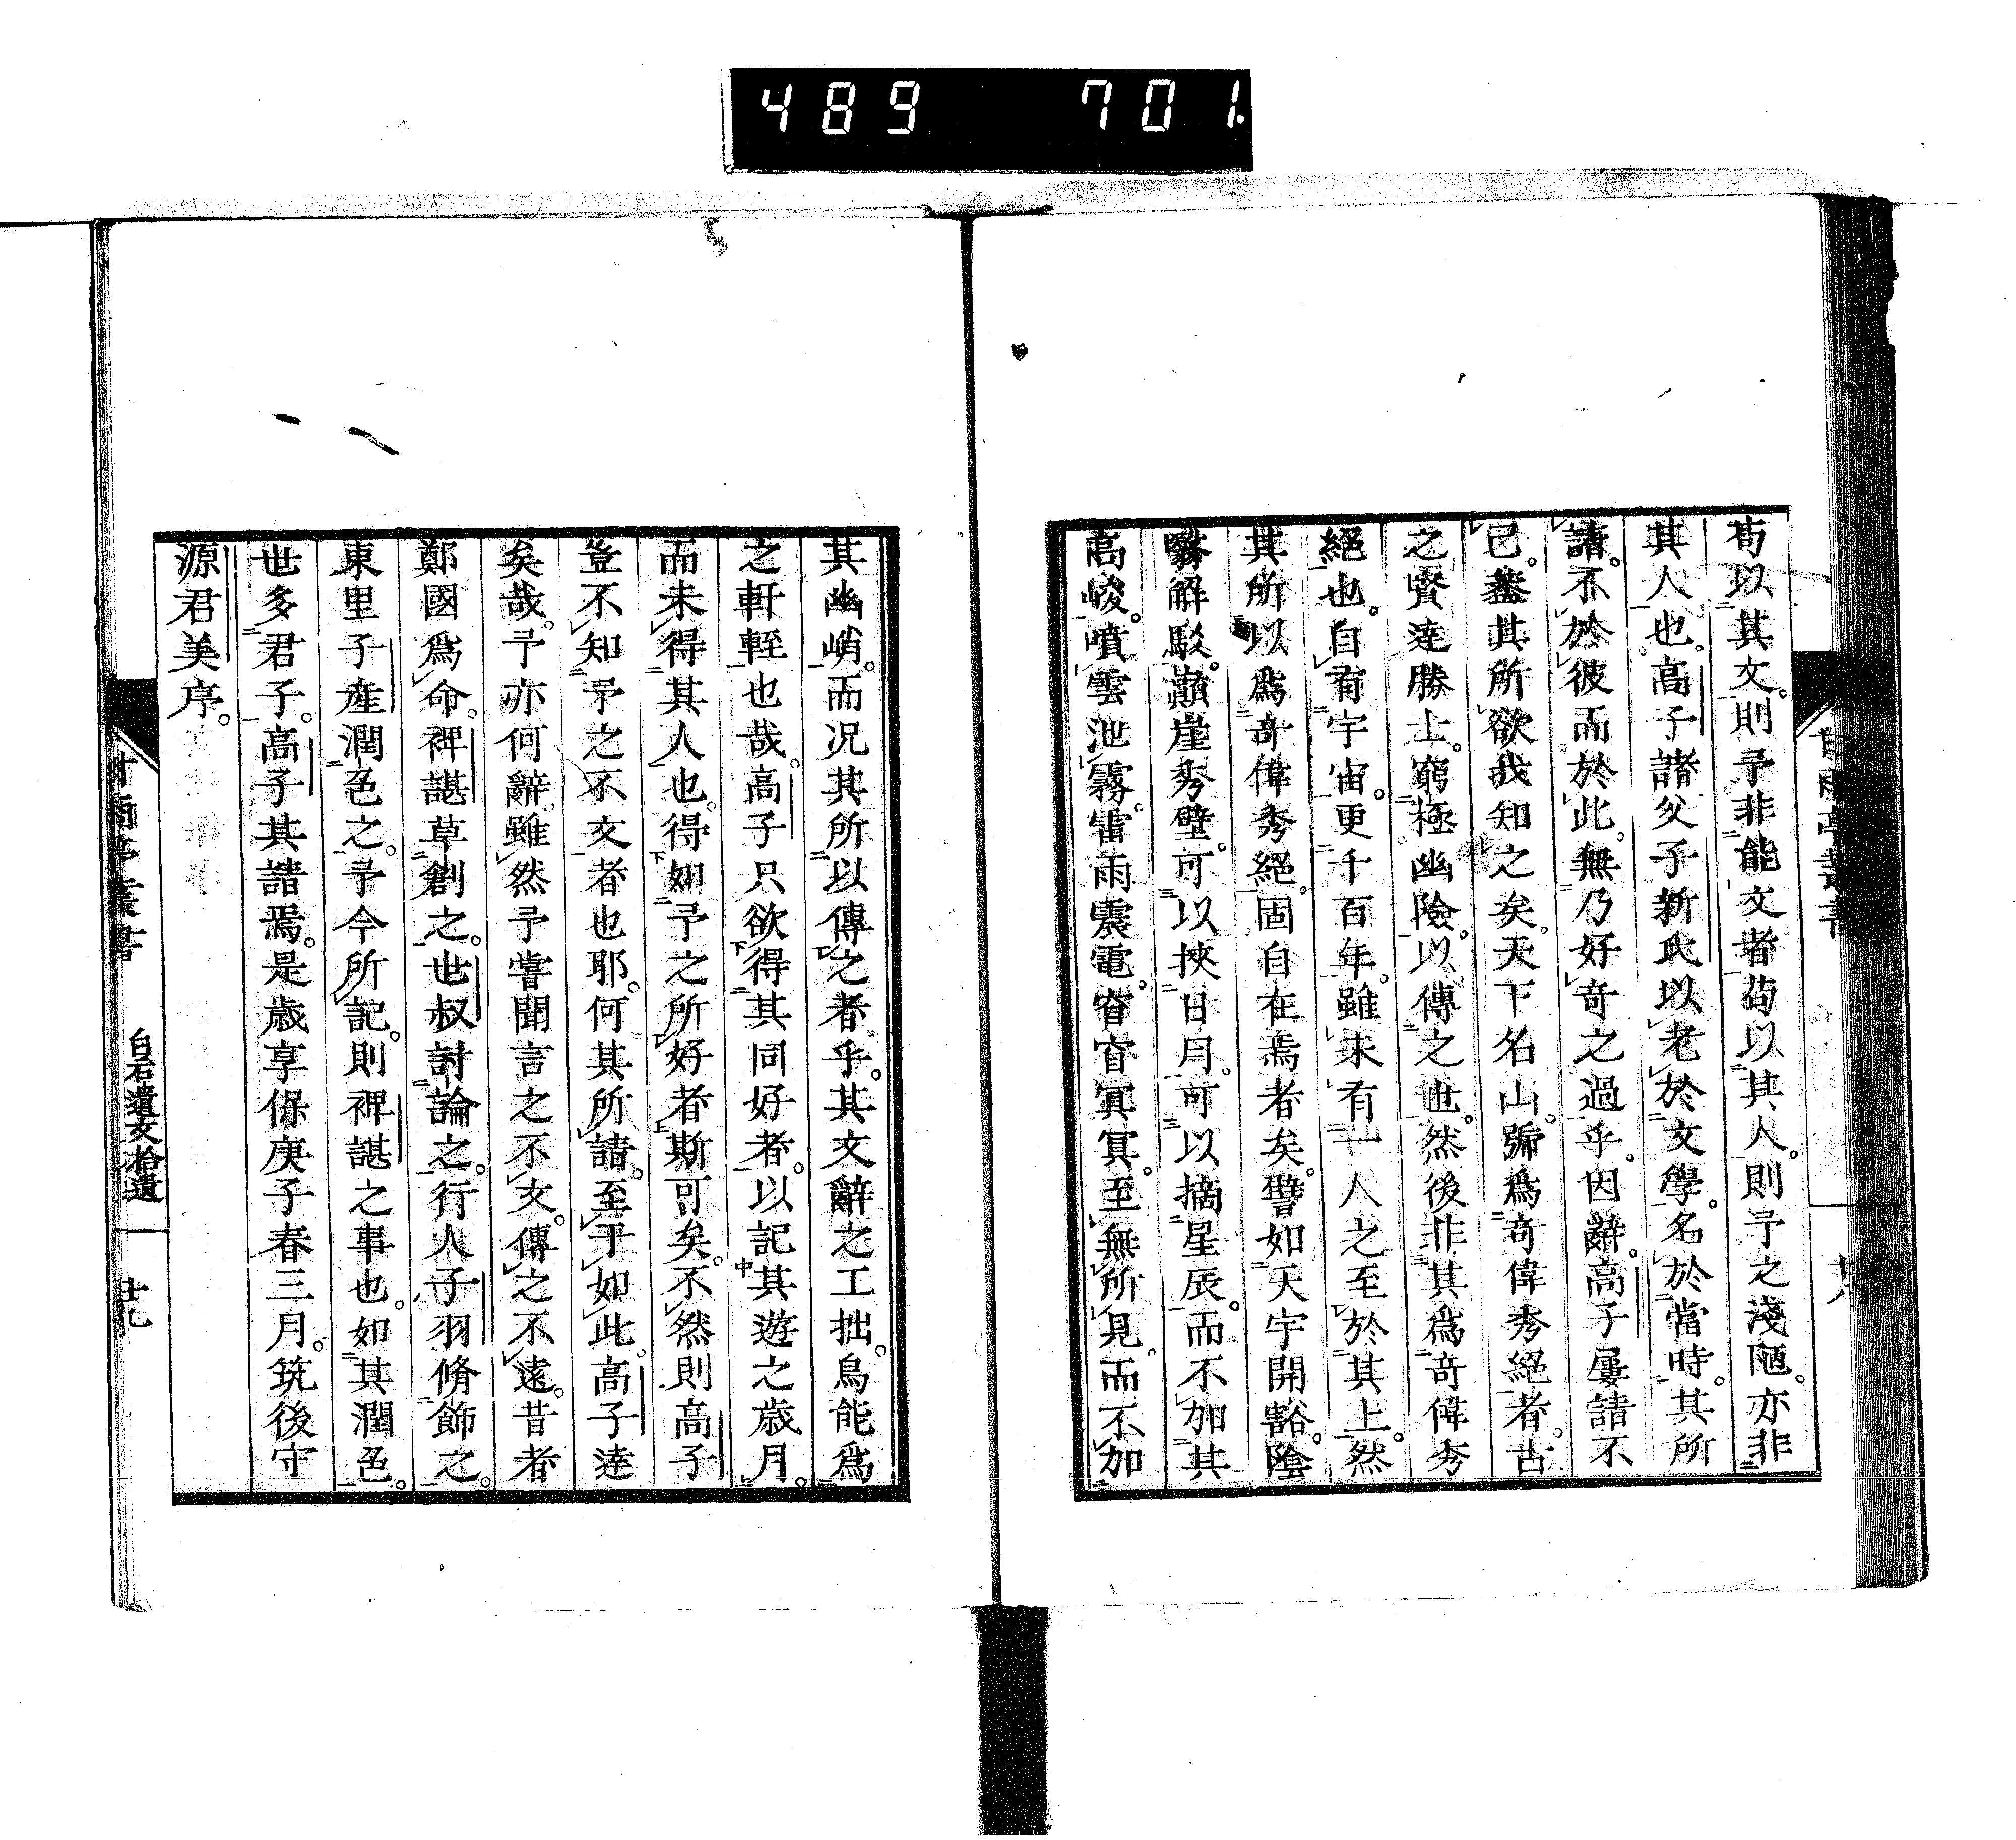 489 701.
苟以其文。則予非能文者。苟以其人。則予之淺陋。亦非
其人也。高子諸父子新氏以老於文學。名於當時。其所
請。不於彼而於此。無乃好奇之過乎。因辭。高子屢請不
已。蓋其所欲我知之矣。天下名山。號爲奇偉秀絕者。古
之賢達勝士。窮極幽險。以傳之世。然後非其爲奇偉秀
絕也。自有宇宙。更千百年。雖未有一人之至於其上。然
其所以爲奇偉秀絕。固自在焉者矣。譬如天宇開豁。陰
翳解駁。巔崖秀壁。可以挾日月。可以摘星辰。而不加其
高峻。噴雲泄霧。雷雨震電。窅窅冥冥。至無所見。而不加
其幽峭。而况其所以傳之者乎。其文辭之工拙。烏能爲
之軒輊也哉。高子只欲得其同好者。以記其遊之歲月。
而未得其人也。得如予之所好者斯可矣。不然則高子
豈不知予之不文者也耶。何其所請。至于如此。高子達
矣哉。予亦何辭。雖然予嘗聞言之不文。傳之不遠。昔者
鄭國爲命。裨諶草創之。世叔討論之。行人子羽脩飾之。
東里子產潤色之。予今所記。則裨諶之事也。如其潤色。
世多君子。高子其請焉。是歲享保庚子春三月。筑後守
源君美序。
甘雨亭叢書 白石遺文拾遺 廿九